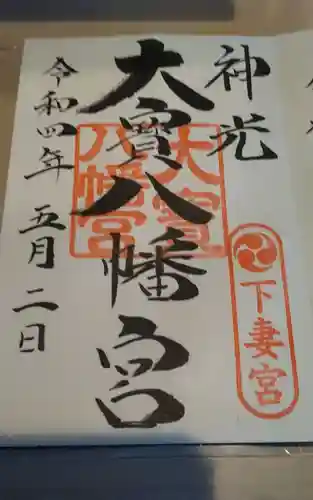 神光
大寳八幡宮
大寳八幡宮
下妻宮
令和四年 五月二日